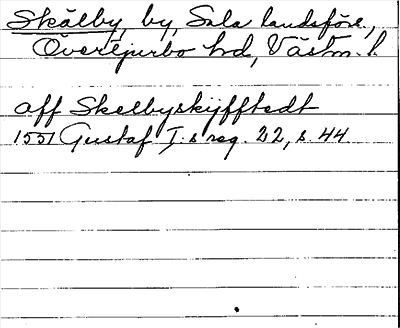 Skälby, by, Sala landsförs.,
Övertjurbo hd, Västm. l.
aff Skelbyskijfftedt
1551 Gustaf I:s reg. 22, s. 44